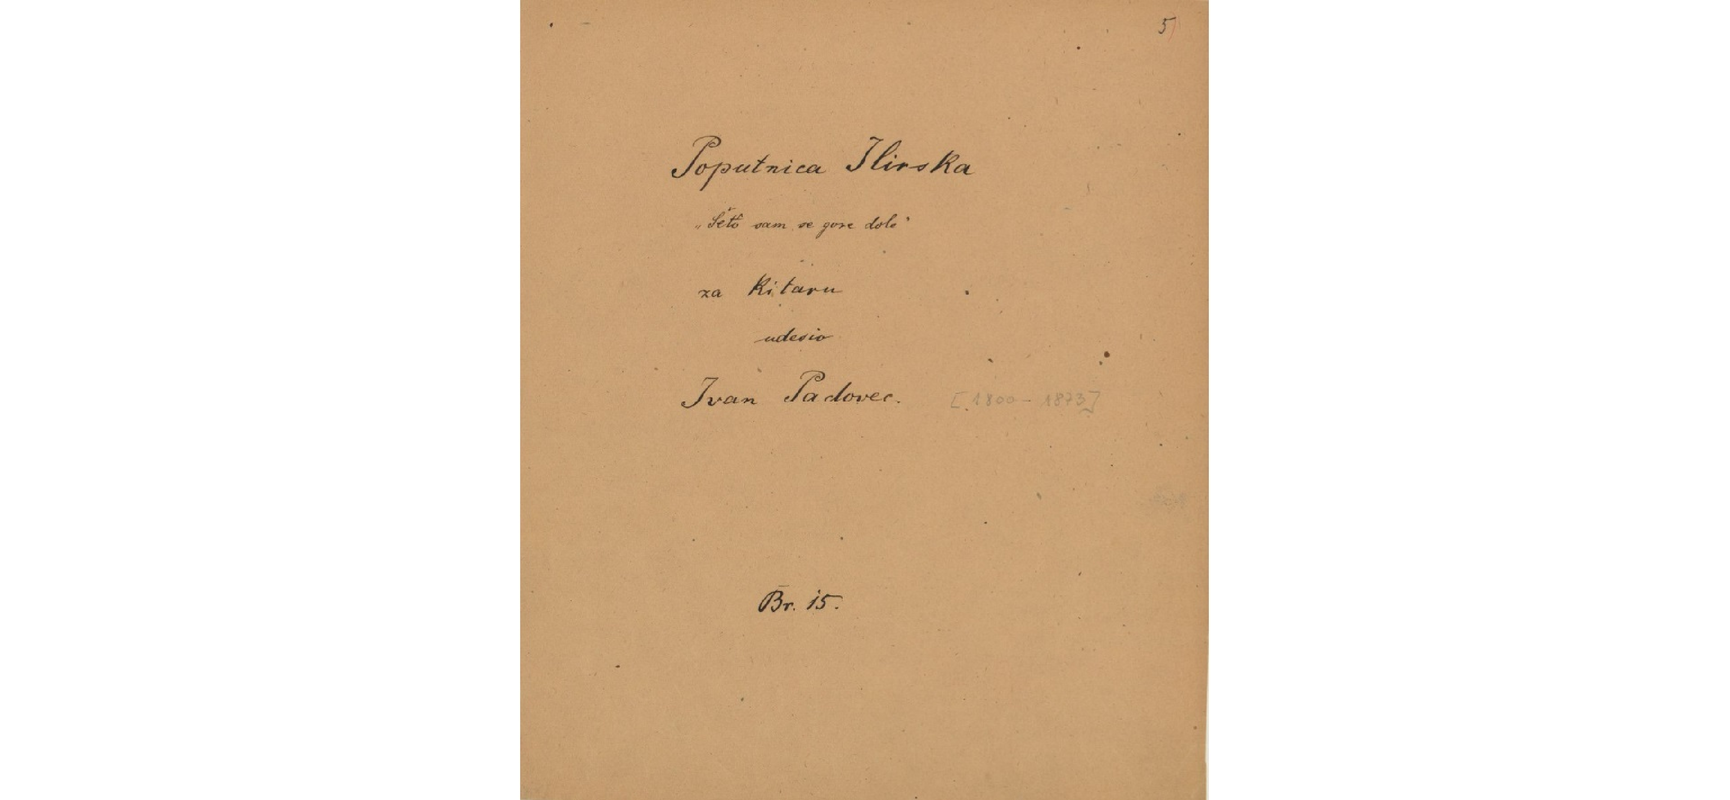 5
Poputnica Ilirska
„Šetô sam se gore dolě"
za Kitaru
udesio
Ivan Padovec. [1800 - 1873]
Br. 15.